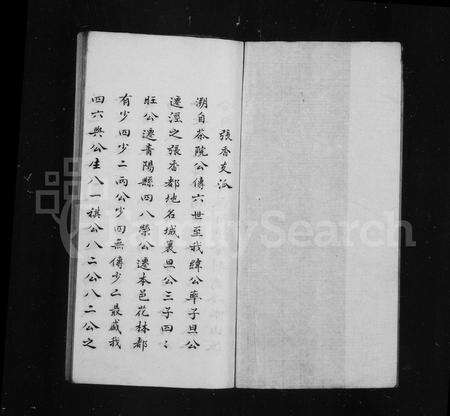 張香支派
溯自荼院公傳六世至我緯公率子旦公
遷涇之張香都地名城裏旦公三子四〻
旺公遷青陽縣四八榮公遷本邑花林都
有少四少二兩公少四無傳少二最盛我
四六與公生八一祺公八二公八二公之
FamilySearch